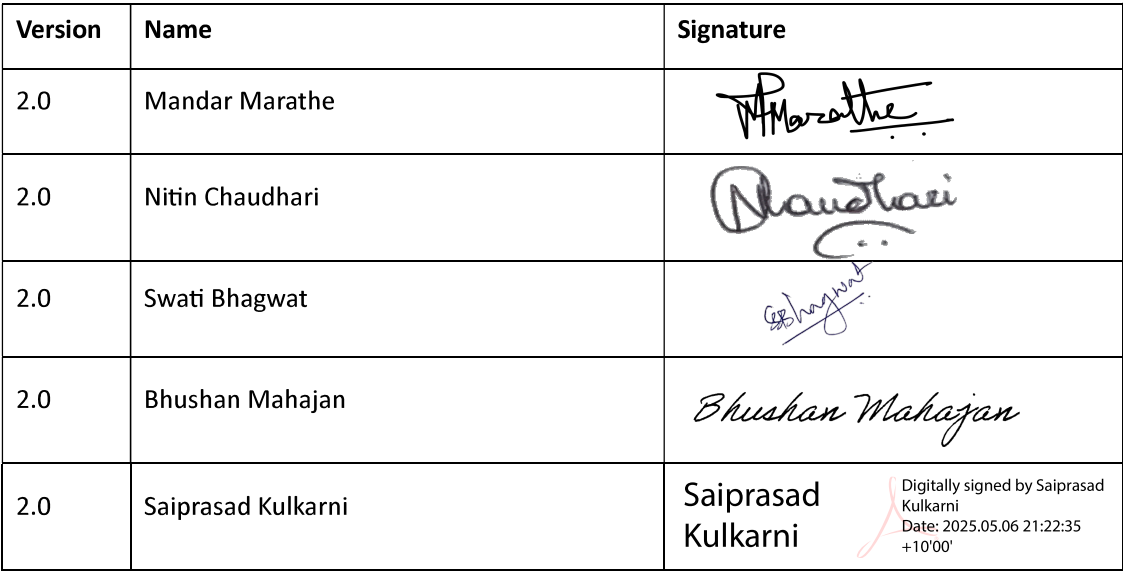 Version Name Signature
2.0 Mandar Marathe Marathe
2.0 Nitin Chaudhari Nhaudhari
2.0 Swati Bhagwat SBhagwat
2.0 Bhushan Mahajan Bhushan Mahajan
2.0 Saiprasad Kulkarni Saiprasad
Kulkarni
Digitally signed by Saiprasad
Kulkarni
Date: 2025.05.06 21:22:35
+10'00'